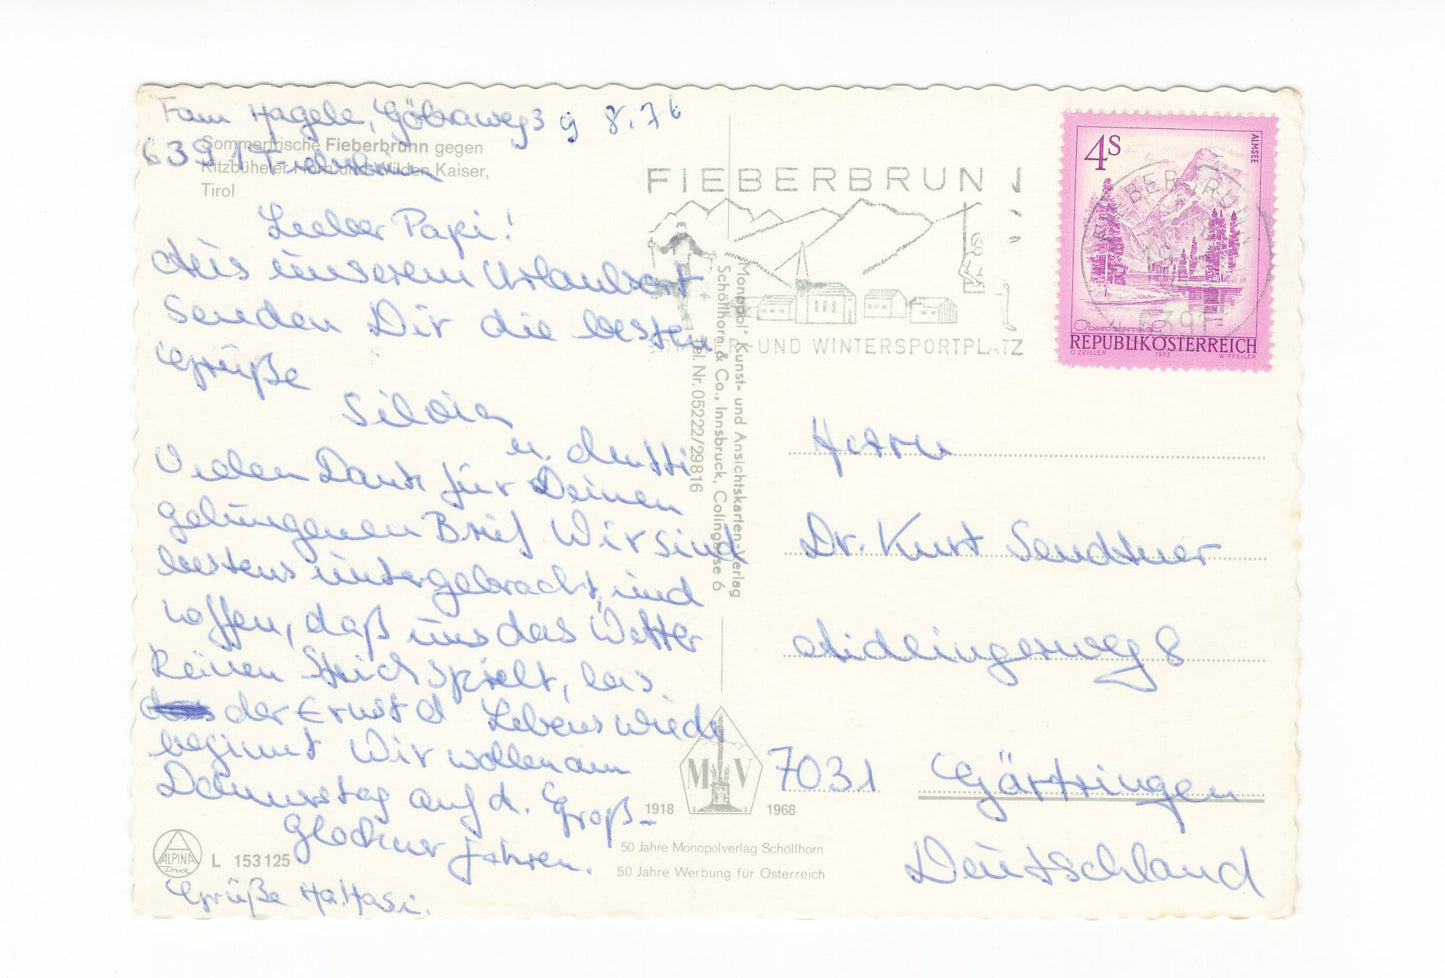 Fam Hagele, Göbraweg 3 9 8.76
6391 Fieberbrunn
Sommerfrische Fieberbrunn gegen
Kitzbüheler Horn und Wilden Kaiser,
Tirol
Lieber Papi!
Aus unserem Urlaubsort
senden Dir die besten
Grüße
Silvia
u. Mutti
Vielen Dank für Deinen
gelungenen Brief. Wir sind
bestens untergebracht und
hoffen, daß uns das Wetter
keinen Streich spielt, bis
der Ernst d Lebens wieder
beginnt Wir wollen am
Donnerstag auf d. Groß-
glockner fahren.
Grüße
ALPINA
Druck
L 153 125
Monopol" Kunst- und Ansichtskarten-Verlag
Schöllhorn & Co., Innsbruck, Colingasse 6
Tel. Nr. 05222/29816
M V
1918 1968
50 Jahre Monopolverlag Schöllhorn
50 Jahre Werbung für Österreich
FIEBERBRUNN
SOMMER- UND WINTERSPORTPLATZ
4S
ALMSEE
Oberösterreich
REPUBLIK ÖSTERREICH
O. ZEILLER 1973 W. PFEILER
FIEBERBRUNN
6391
Herrn
Dr. Kurt Sendtner
Aidlingerweg 8
7031 Gärtringen
Deutschland